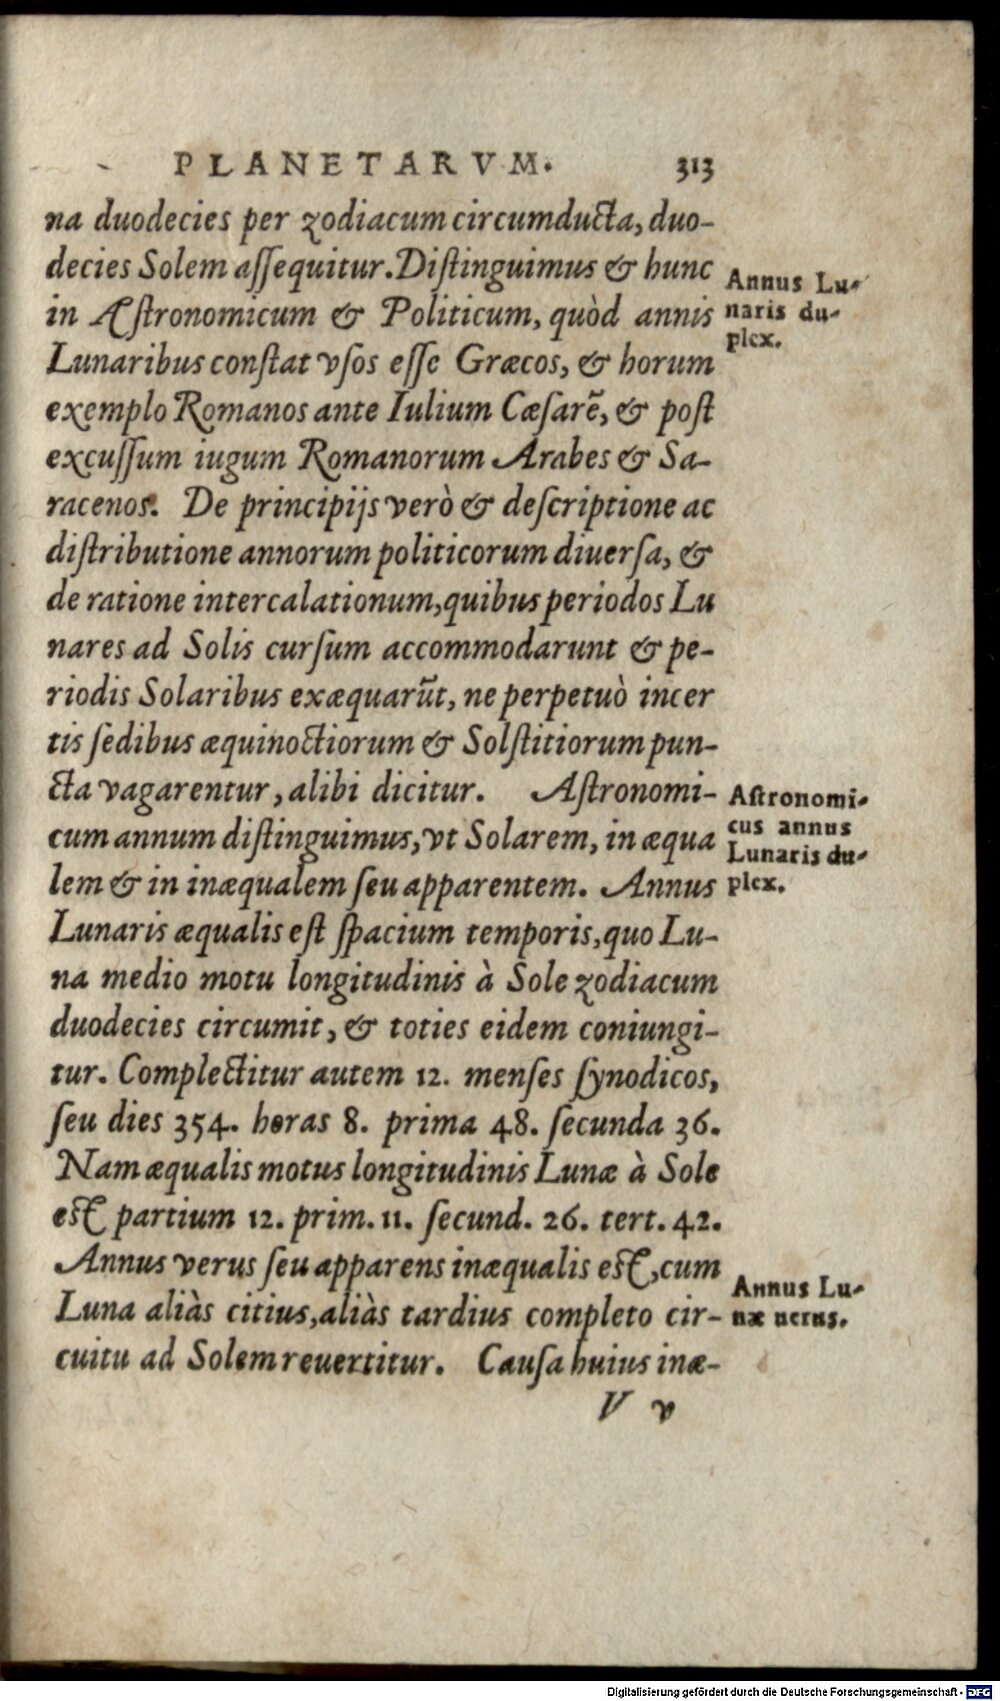 PLANETARVM. 313
na duodecies per zodiacum circumducta, duo-
decies Solem assequitur. Distinguimus & hunc
in Æstronomicum & Politicum, quòd annis
Lunaribus constat vsos esse Græcos, & horum
exemplo Romanos ante Iulium Cæsarẽ, & post
excussum iugum Romanorum Arabes & Sa-
racenos. De principijs verò & descriptione ac
distributione annorum politicorum diuersa, &
de ratione intercalationum, quibus periodos Lu
nares ad Solis cursum accommodarunt & pe-
riodis Solaribus exæquarũt, ne perpetuò incer
tis sedibus æquinoctiorum & Solstitiorum pun-
cta vagarentur, alibi dicitur. Astronomi-
cum annum distinguimus, vt Solarem, in æqua
lem & in inæqualem seu apparentem. Annus
Lunaris æqualis est spacium temporis, quo Lu-
na medio motu longitudinis à Sole zodiacum
duodecies circumit, & toties eidem coniungi-
tur. Complectitur autem 12. menses synodicos,
seu dies 354. horas 8. prima 48. secunda 36.
Nam æqualis motus longitudinis Lunæ à Sole
est partium 12. prim. 11. secund. 26. tert. 42.
Annus verus seu apparens inæqualis est, cum
Luna aliàs citius, aliàs tardius completo cir-
cuitu ad Solem reuertitur. Causa huius inæ-
V v
Annus Lu-
naris du-
plex.
Astronomi-
cus annus
Lunaris du-
plex.
Annus Lu-
næ uerus.
Digitalisierung gefördert durch die Deutsche Forschungsgemeinschaft - DFG